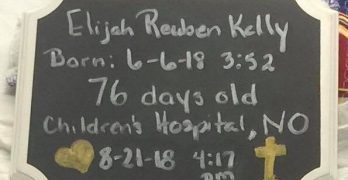 Elijah Reuben Kelly
Born: 6-6-18 3:52
76 days old
Children's Hospital, NO
8-21-18 4:17
pm